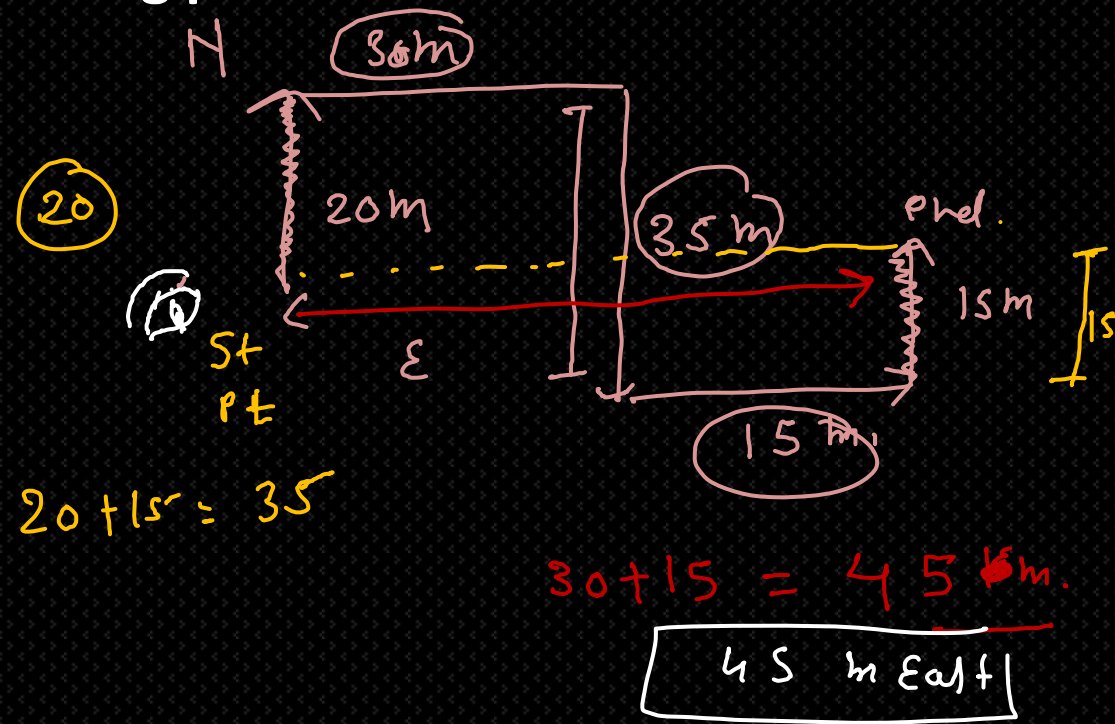 N
30m
20
20m
35m
end.
15m
15
St
Pt
E
15 m.
20+15= 35
30+15 = 45 m.
45 m East